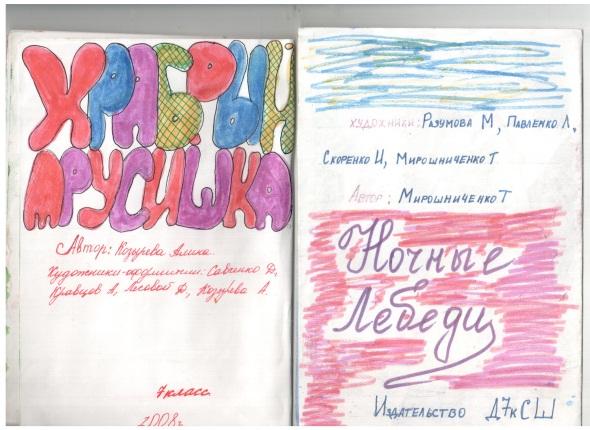 ХРАБРЫЙ
ТРУСИШКА
Автор: Козырева Алина.
Художники-оформители: Савченко Д,
Кравцов А, Лесовой Д, Козырева А.
7 класс
2008г
художники: Разумова М, Павленко Л,
Скоренко И, Мирошниченко Т
Автор: Мирошниченко Т
Ночные
Лебеди
Издательство Д7кСШ